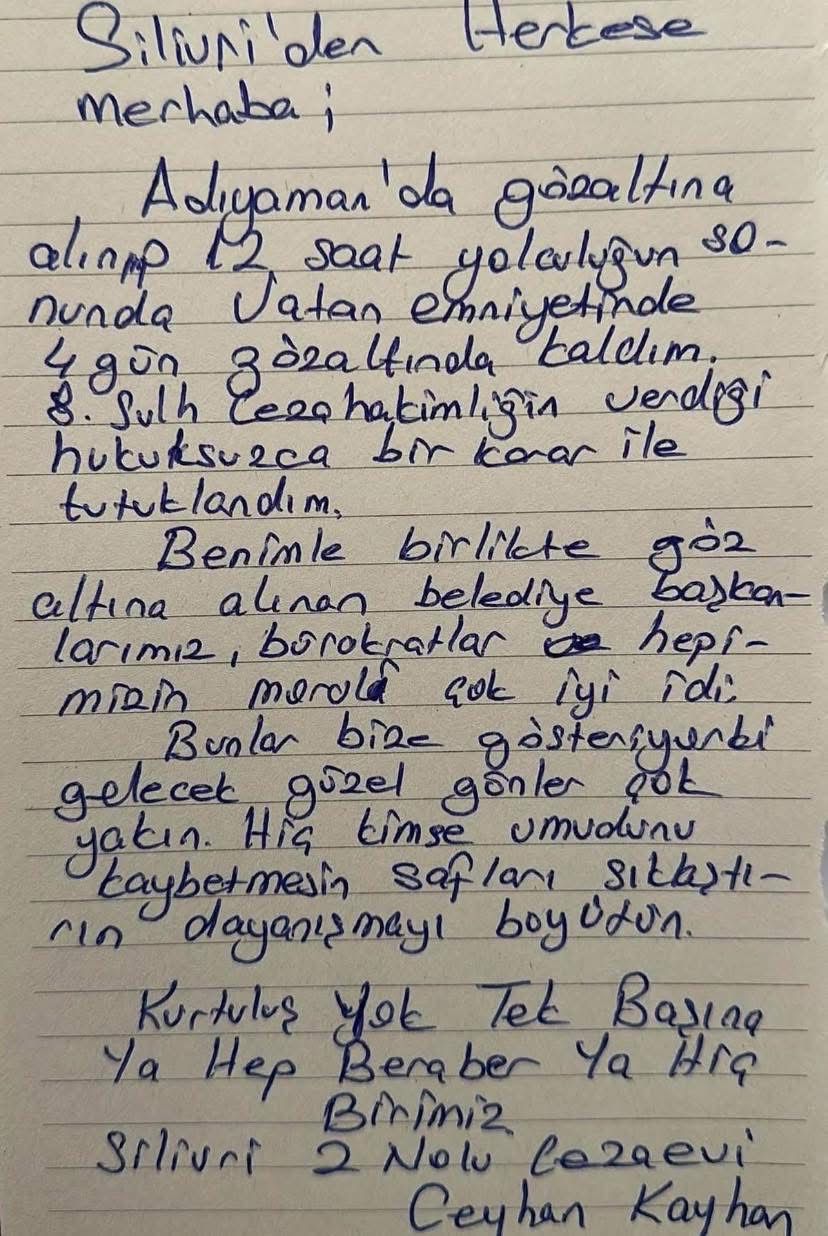 Silivri'den Herkese
merhaba;
Adıyaman'da gözaltına
alınıp 12 saat yolculuğun so-
nunda Vatan emniyetinde
4 gün gözaltında kaldım.
8. Sulh Ceza hakimliğin verdiği
hukuksuzca bir karar ile
tutuklandım.
Benimle birlikte göz
altına alınan belediye başkan-
larımız, bürokratlar hepi-
mizin moralı çok iyi idi.
Bunlar bize gösteriyorki
gelecek güzel günler çok
yakın. Hiç kimse umudunu
kaybetmesin safları sıklaştı-
rın dayanışmayı boyüdün.
Kurtuluş Yok Tek Başına
Ya Hep Beraber Ya Hiç
Birimiz
Silivri 2 Nolu Cezaevi
Ceyhan Kayhan